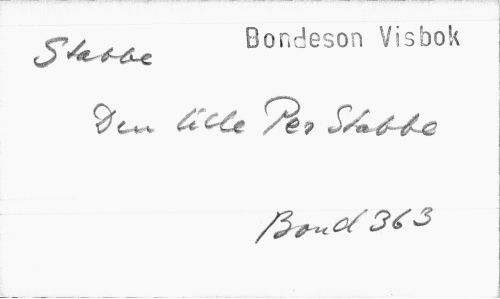 Bondeson Visbok
Stabbe
Den lille Per Stabbe
Bond 363